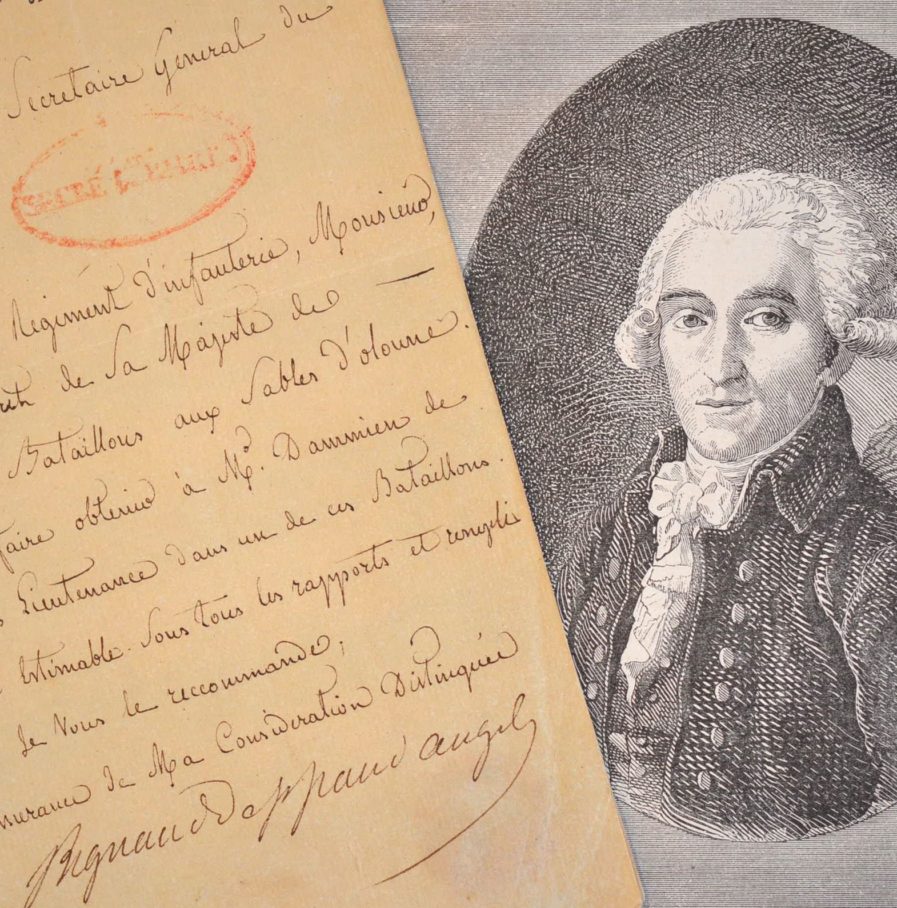 Secretaire Général du
Régiment d'infanterie, Monsieur,
de Sa Majeste de —
Bataillons aux Sables d'olonne.
faire obtenir à Mr. Dammien de
Lieutenance dans un de ces Bataillons.
Estimable Sous tous les rapports et rempli
Je Vous le reccommande;
de Ma Considération Distinguée